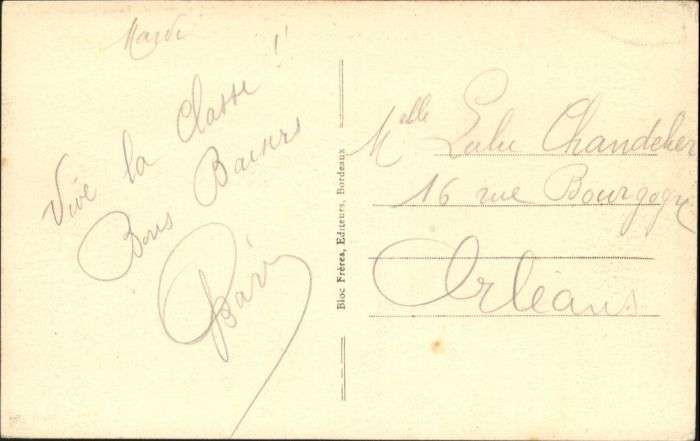 Mardi
Vive la Classe !
Bons Baisers
Bloc Frères, Editeurs, Bordeaux
Melle Lulu Chandelier
16 rue Bourgogne
Orléans